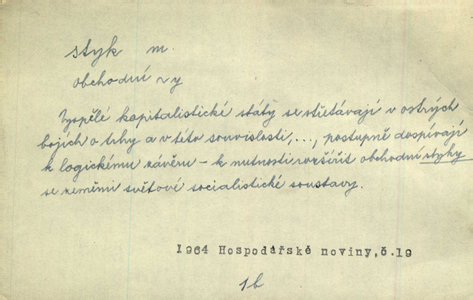 styk m.
obchodní ~y
Vyspělé kapitalistické státy se střetávají v ostrých
bojích o trhy a v této souvislosti,..., postupně dospívají
k logickému závěru – k nutnosti rozšířit obchodní styky
se zeměmi světové socialistické soustavy.
1964 Hospodářské noviny,č.19
1b